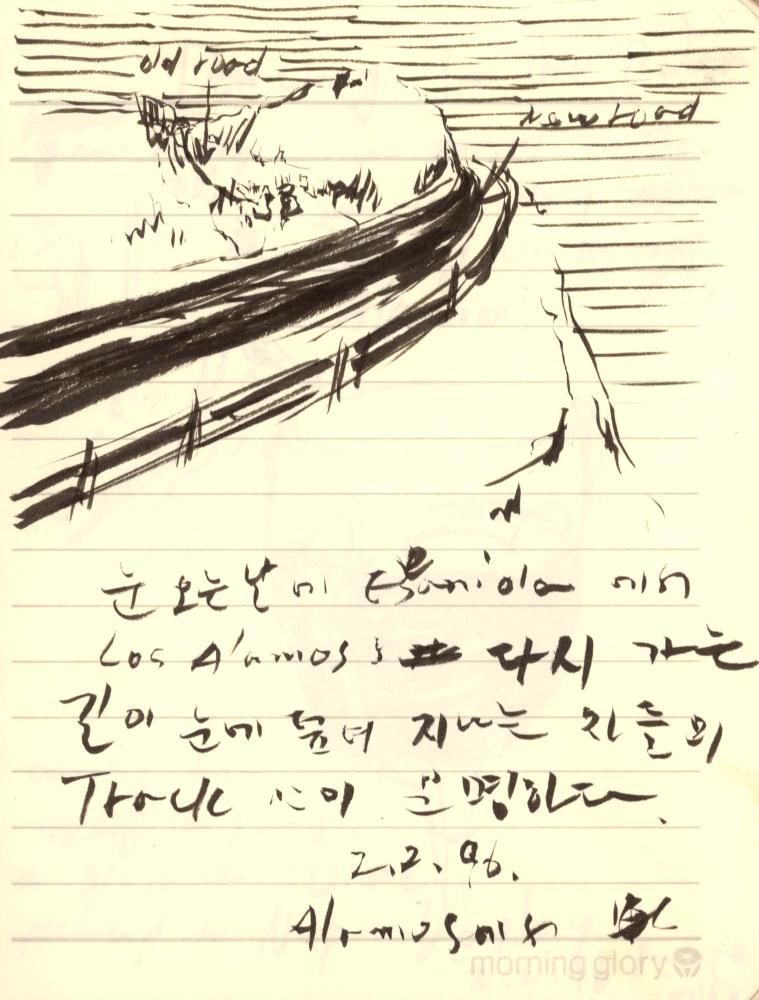 old road
New road
눈 오는 날에 Espaniola 에서
Los Alamos 로 다시 가는
길이 눈에 덮여 지나는 차들의
Track 선이 분명하다.
2.2.96.
Alamos에서
morning glory